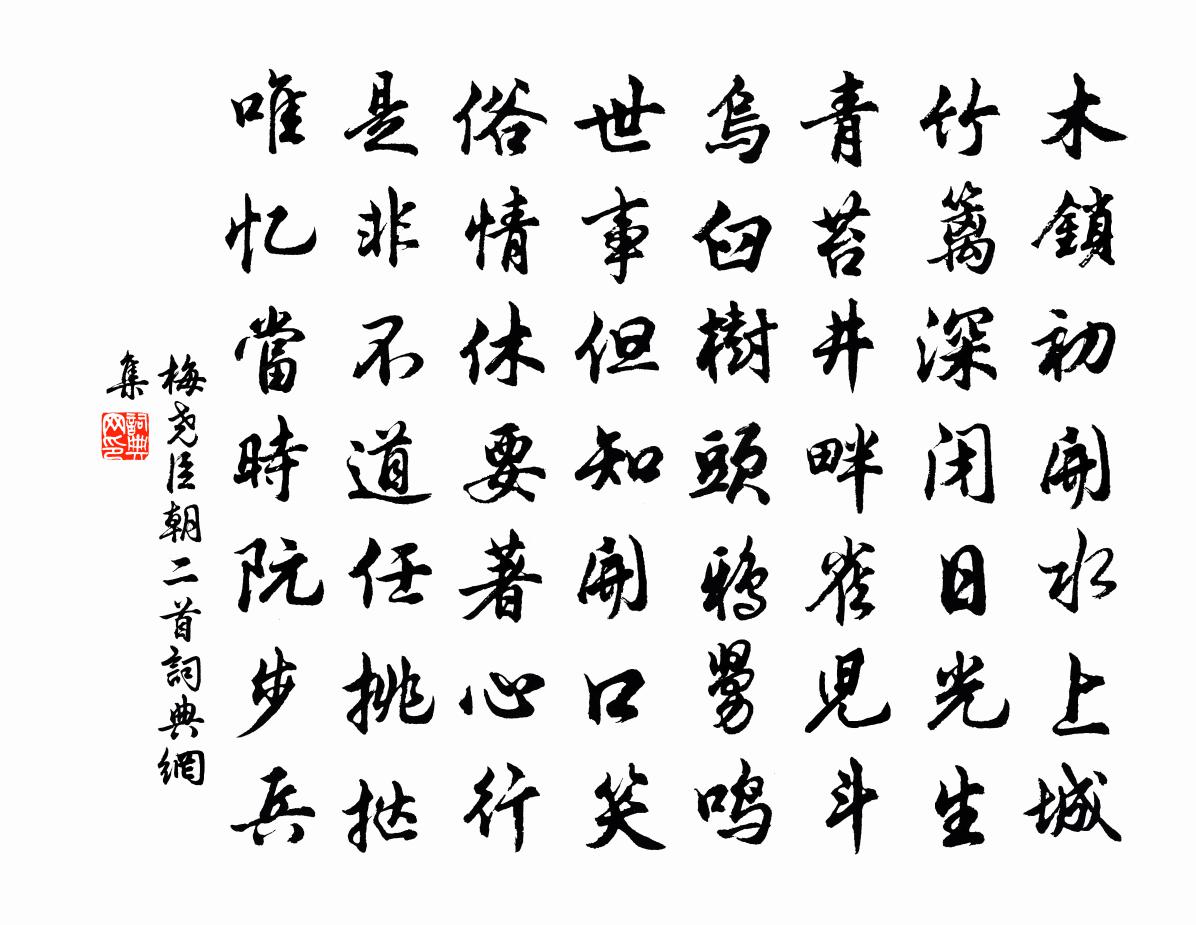 木鎖初開水上城
竹籬深閉日光生
青苔井畔雀兒斗
烏臼樹頭鴉舅鳴
世事但知開口笑
俗情休要著心行
是非不道任挑挞
唯忆當時阮步兵
梅尧臣朝二首詞典網
集
詞典网印